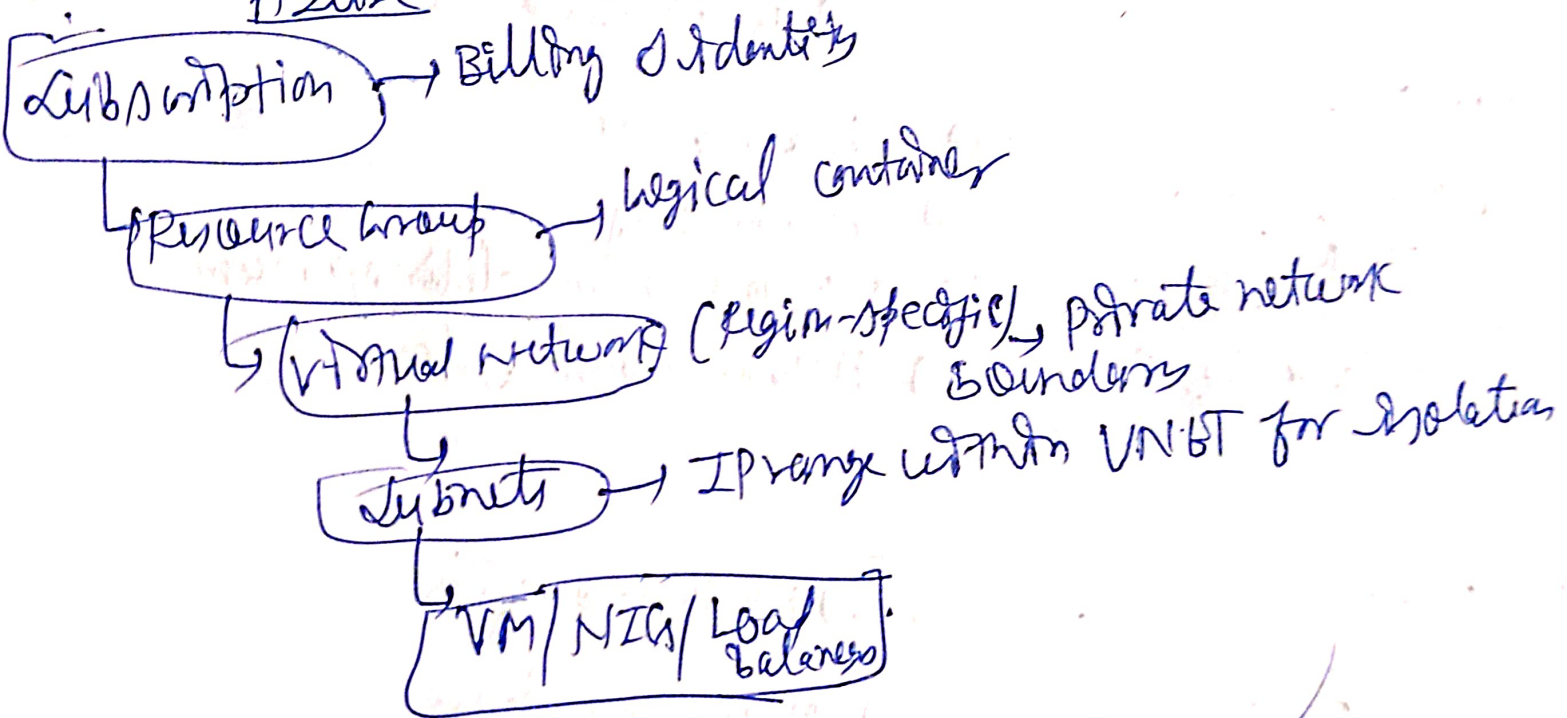 Azure
Subscription → Billing & identity
Resource Group → Logical container
Virtual Network (Region-specific) → private network
Boundary
Subnets → IP range within VNET for isolation
VM / NICs / Load
balancers